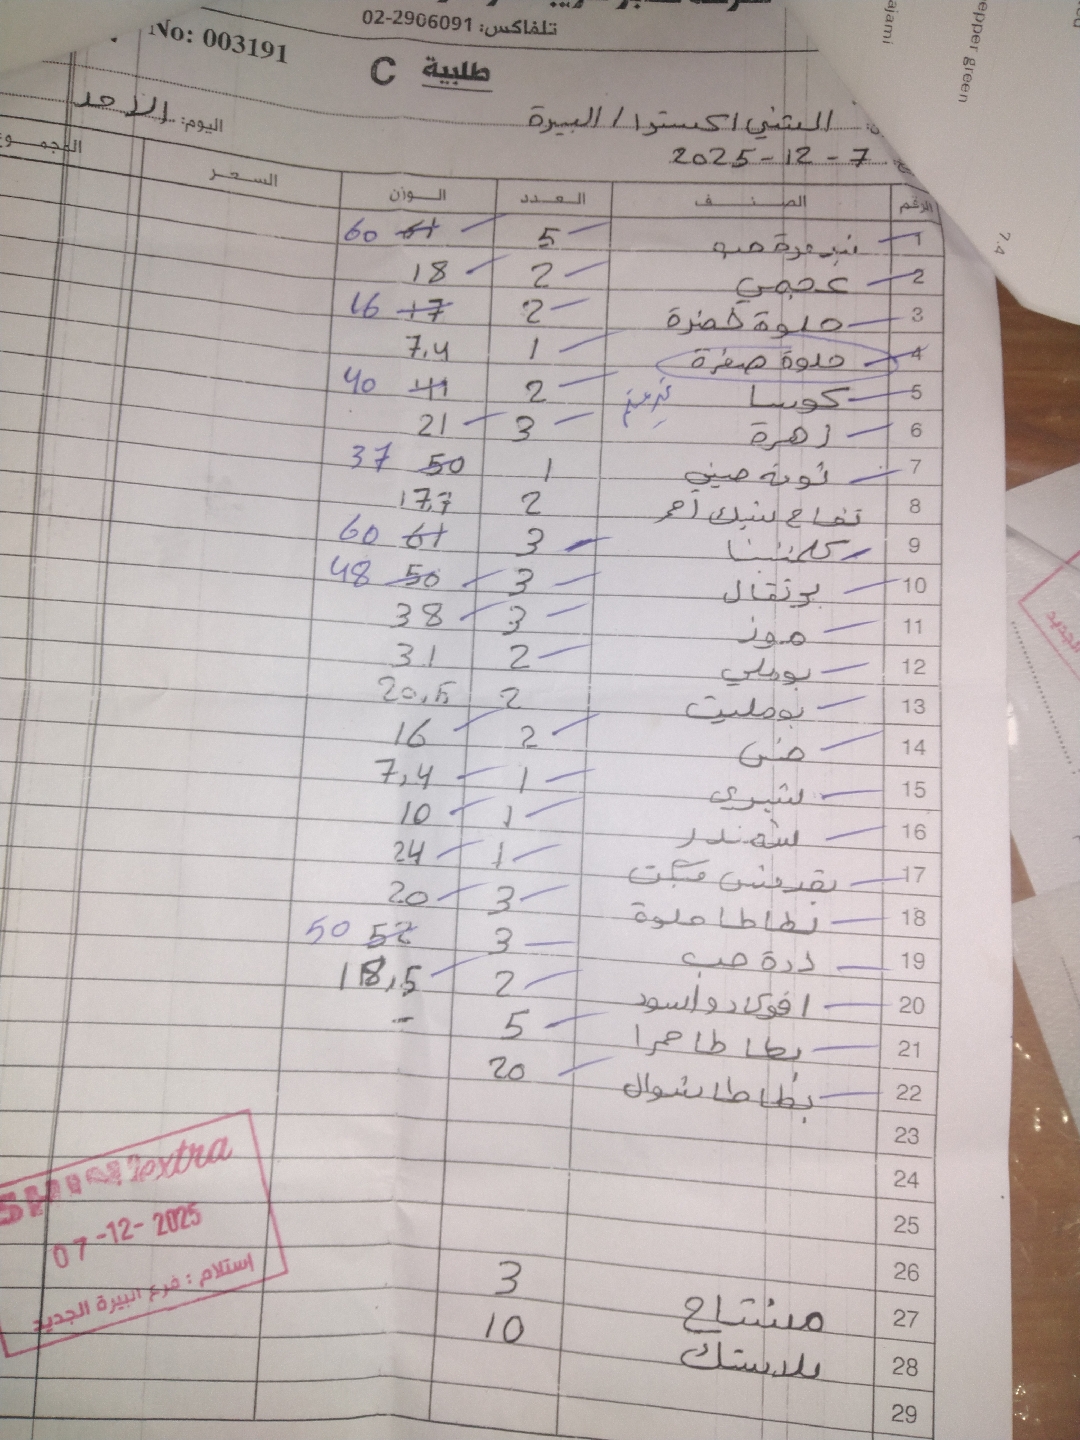 تلفاكس: 02-2906091
No: 003191
طلبية C
الشني اكسترا / البيرة
اليوم: الأحد
2025-12-7
الرقم الصنف العدد الوزن السعر المجموع
1 بندورة حب 5 61 60
2 عجمي 2 18
3 حلوة خضرة 2 17 16
4 حلوة صفرة 1 7,4
5 كوسا 2 41 40
6 زهرة 3 21
7 ثومة صيني 1 50 37
8 تفاح بنك أحمر 2 17,7
9 كلمنتينا 3 61 60
10 برتقال 3 50 48
11 موز 3 38
12 بوملي 2 31
13 بومليت 2 20,5
14 2 16
15 شيري 1 7,4
16 شمندر 1 10
17 بقدونس 1 24
18 بطاطا حلوة 3 20
19 ذرة حب 3 52 50
20 افوكادو اسود 2 18,5
21 بطاطا حمرا 5 -
22 بطاطا شوال 20
23
24
25
26
27 مشتاح 3
28 بلاستك 10
29
extra
07-12-2025
استلام : فرع البيرة الجديد
ajami
epper green
7.4
الجديد